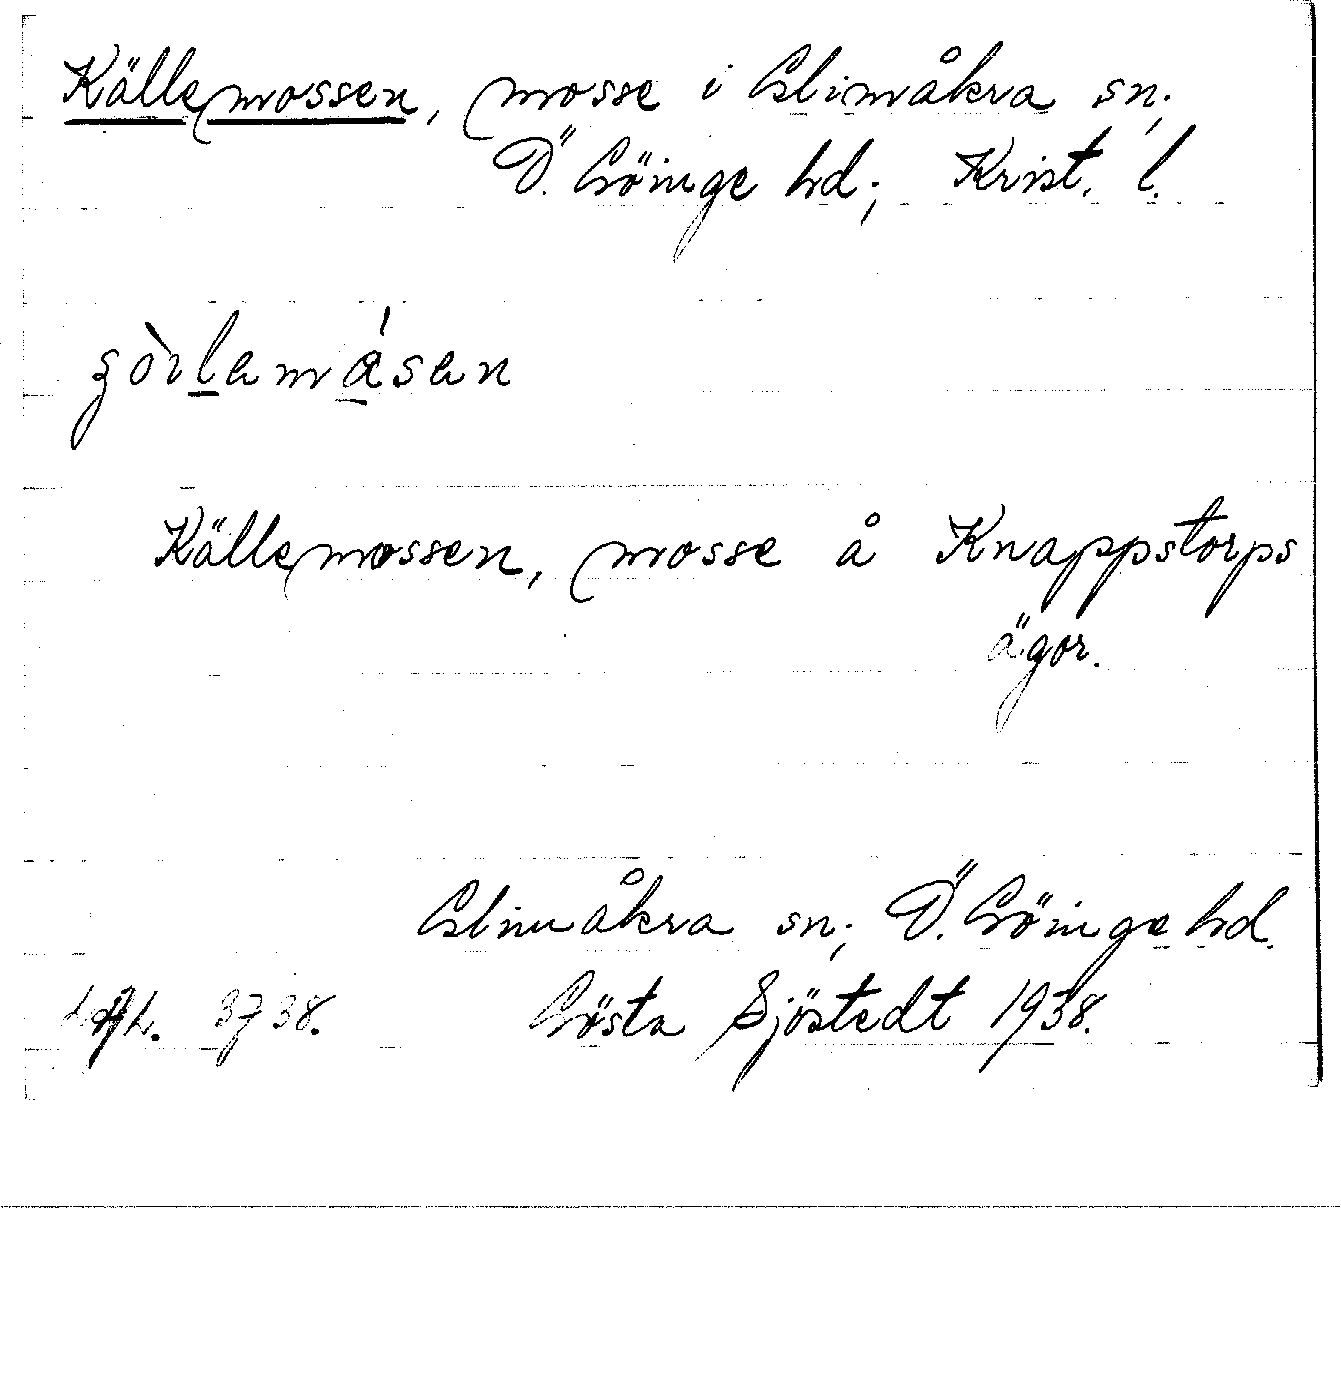 Källemossen, mosse i Glimåkra sn;
Ö. Göinge hd; Krist. l.
Källemossen, mosse å Knappstorps
ägor.
Glimåkra sn; Ö. Göinge hd.
3738. Gösta Sjöstedt 1938.